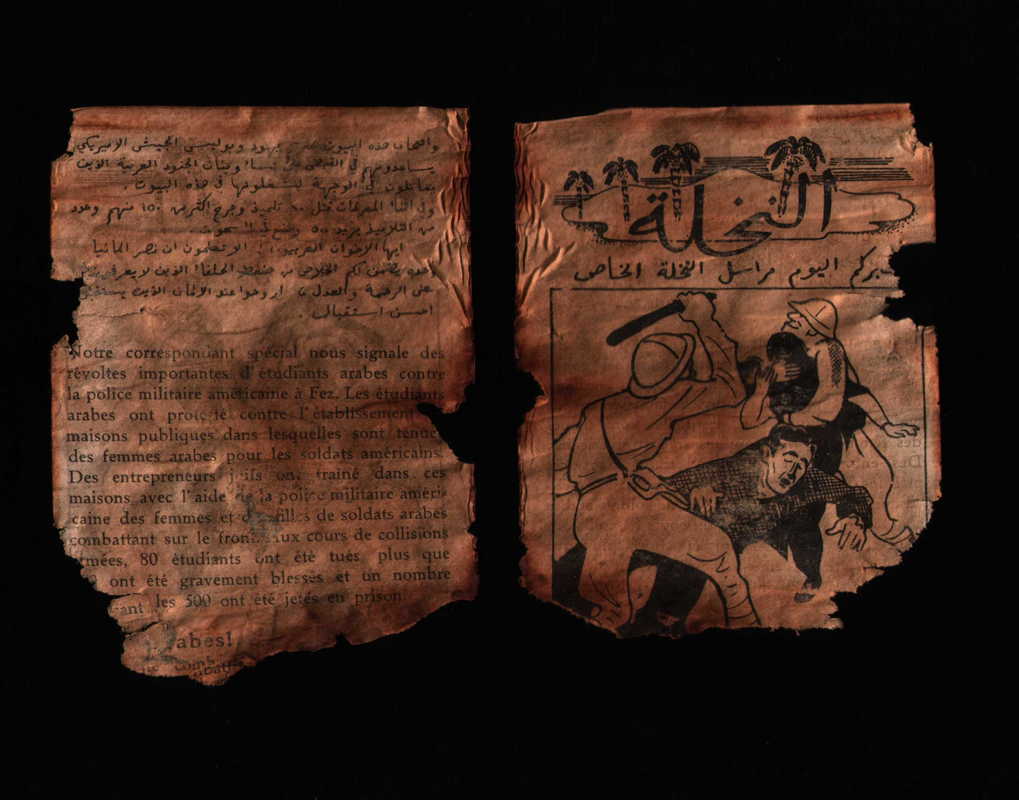 واصحاب هذه البيوت يهود وبوليس الجيش الاميريكي
يساعدونهم في القبض على نساء وبنات الجنود العربية الذين
يقاتلون في الوجهة ليشغلونها في هذه البيوت .
وفي اثناء المعركات قتل ٨٠ تلميذ وجرح اكثر من ١٥٠ منهم وعدد
من التلاميذ يزيد ٥٠٠ وضع في السجون .
ايها الاخوان العربيون ! الا تعلمون ان نصر المانيا
وحده يضمن لكم الخلاص من ضغط الحلفا الذين لا يعرفون
على الرحمة والعدل روحوا عند الالمان الذين
احسن استقبال .
Notre correspondant spécial nous signale des
révoltes importantes d'étudiants arabes contre
la police militaire américaine à Fez. Les étudiants
arabes ont protesté contre l'établissement
maisons publiques dans lesquelles sont tenues
des femmes arabes pour les soldats américains.
Des entrepreneurs juifs ont trainé dans ces
maisons avec l'aide de la police militaire améri-
caine des femmes et des filles de soldats arabes
combattant sur le front. Aux cours de collisions
armées, 80 étudiants ont été tués plus que
ont été gravement blessés et un nombre
les 500 ont été jetés en prison
abes!
النخلة
يخبركم اليوم مراسل النخلة الخاص